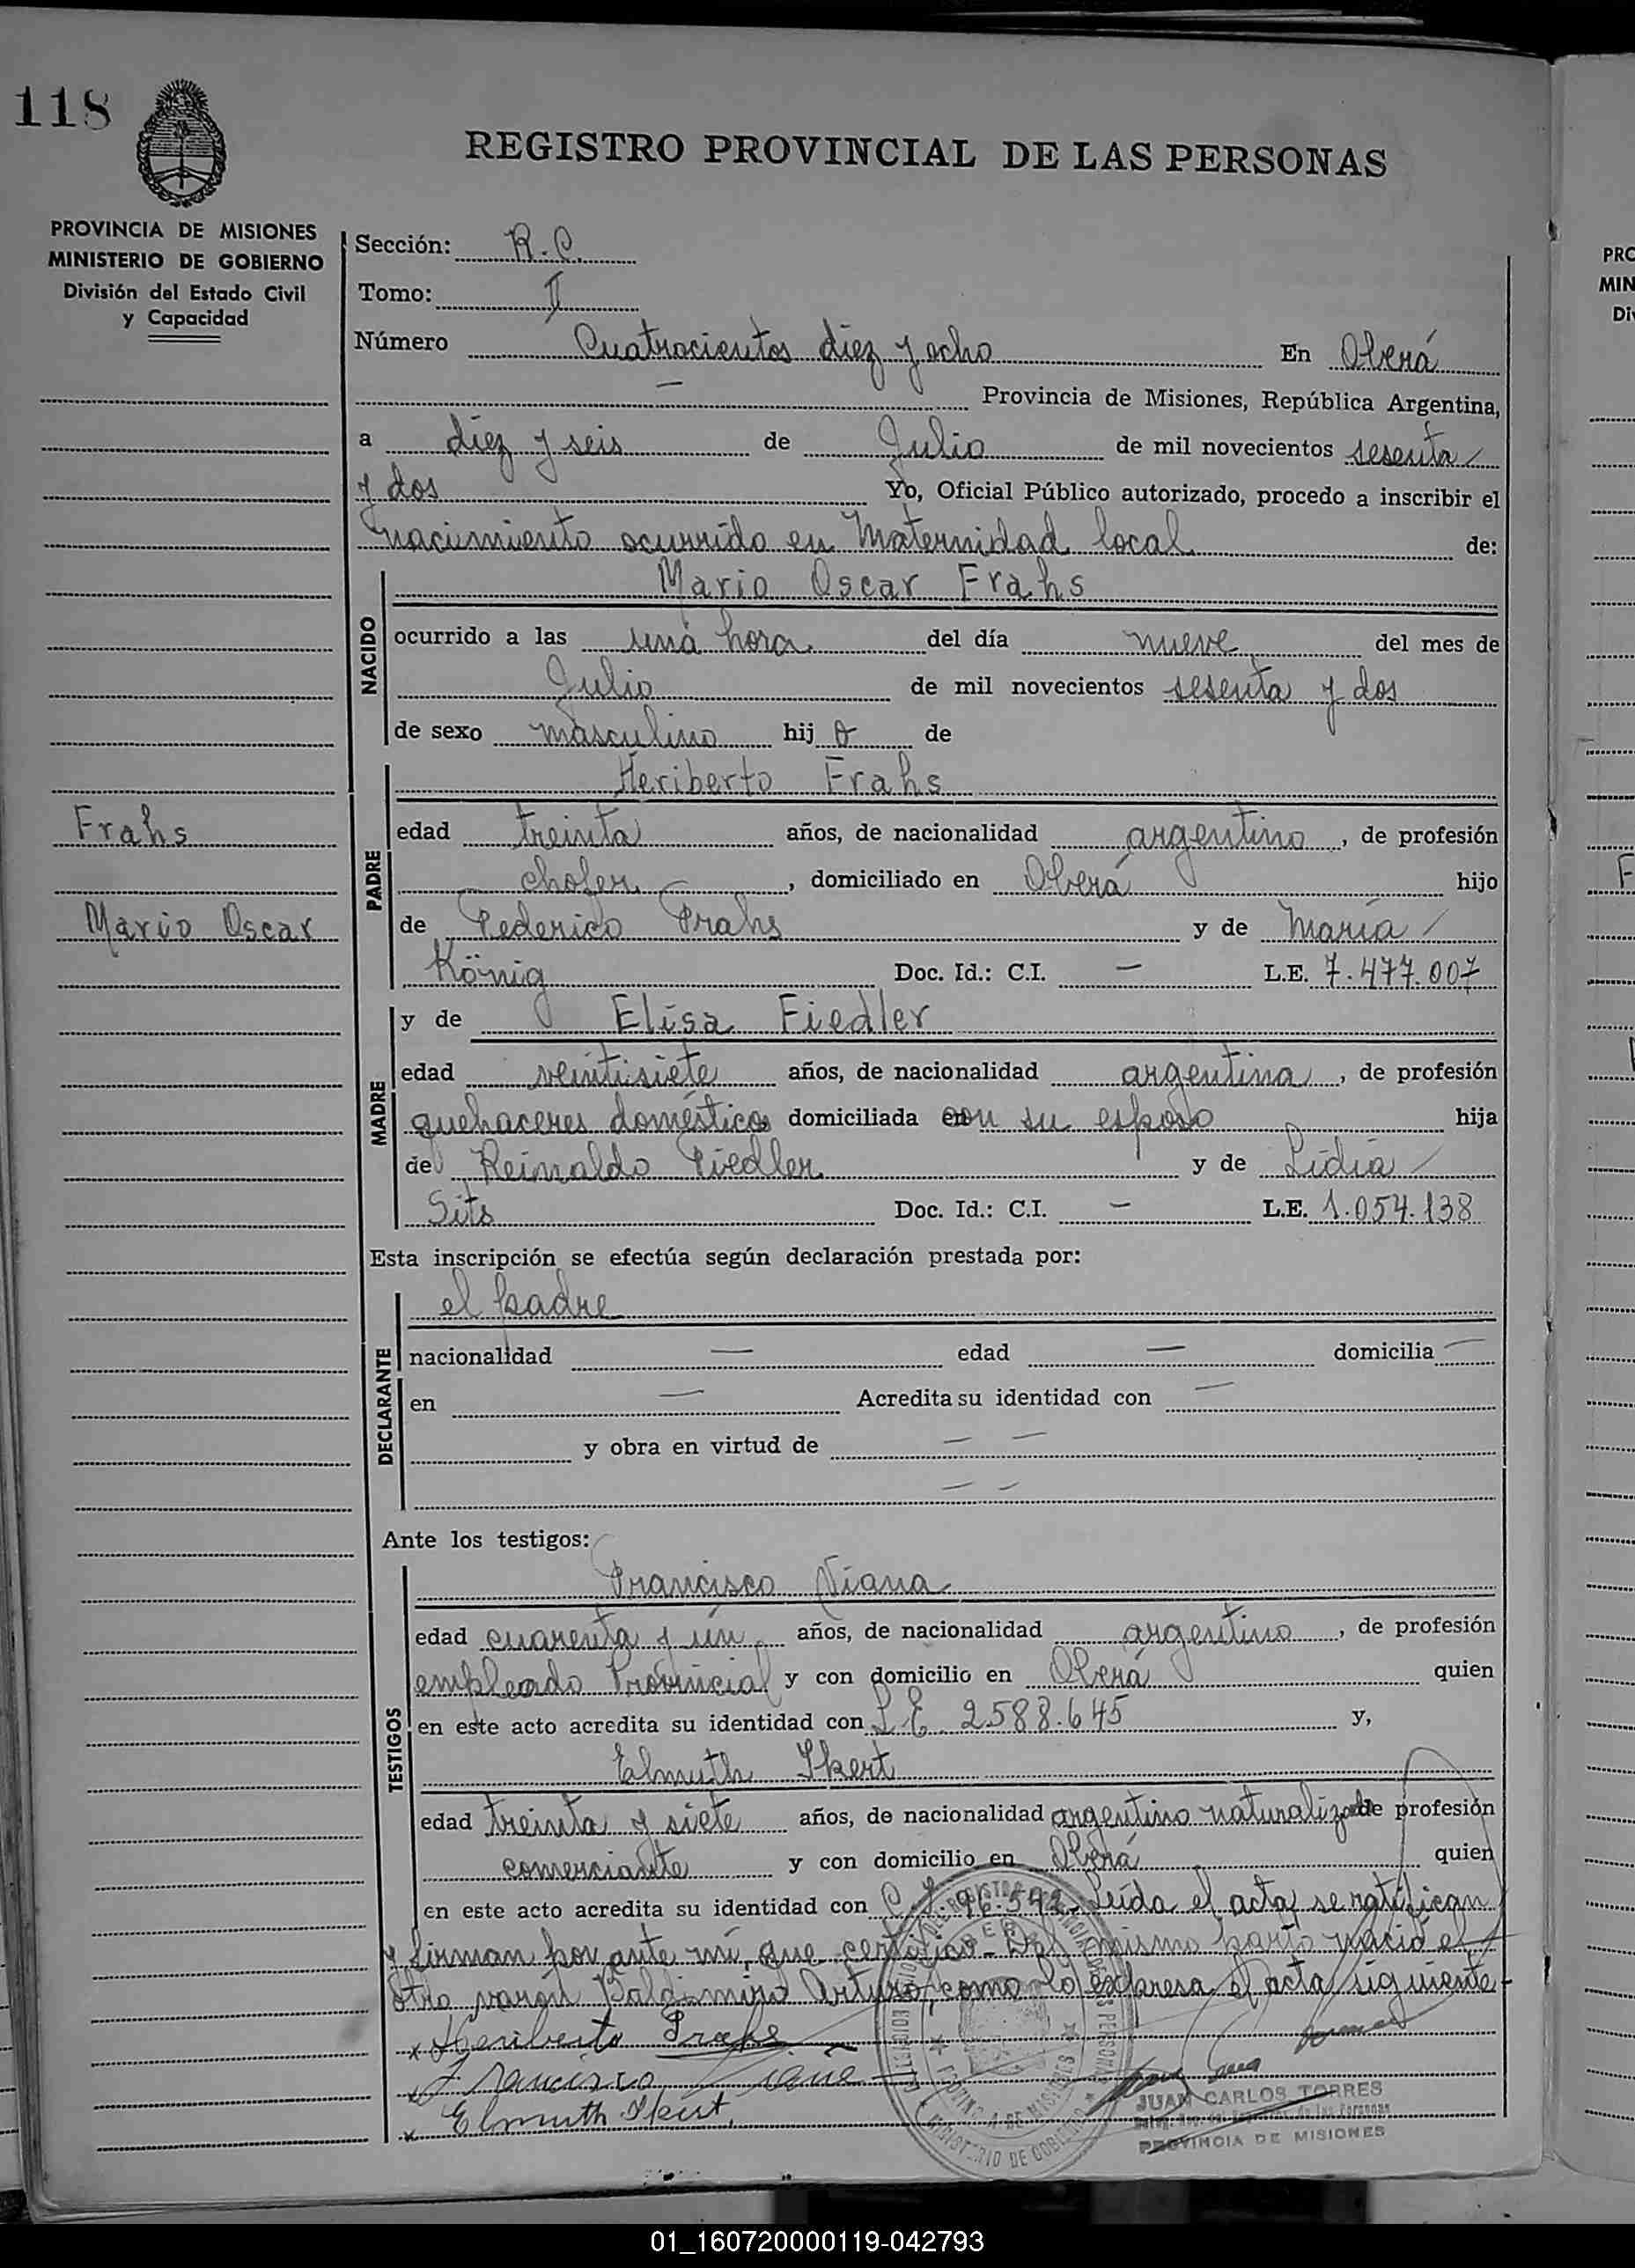 118
REGISTRO PROVINCIAL DE LAS PERSONAS
PROVINCIA DE MISIONES
MINISTERIO DE GOBIERNO
División del Estado Civil
y Capacidad
Sección: R.C.
Tomo: II
Número Cuatrocientos diez y ocho En Oberá
— Provincia de Misiones, República Argentina,
a diez y seis de Julio de mil novecientos sesenta
y dos Yo, Oficial Público autorizado, procedo a inscribir el
nacimiento ocurrido en Maternidad local de:
NACIDO
Mario Oscar Frahs
ocurrido a las una hora del día nueve del mes de
Julio de mil novecientos sesenta y dos
de sexo masculino hij o de
PADRE
Heriberto Frahs
Frahs
edad treinta años, de nacionalidad argentino, de profesión
chofer, domiciliado en Oberá hijo
Mario Oscar
de Federico Frahs y de María
König Doc. Id.: C.I. — L.E. 7.477.007
MADRE
y de Elisa Fiedler
edad veintisiete años, de nacionalidad argentina, de profesión
quehaceres domésticos domiciliada con su esposo hija
de Reinaldo Fiedler y de Lidia
Sits Doc. Id.: C.I. — L.E. 1.054.138
Esta inscripción se efectúa según declaración prestada por:
DECLARANTE
el padre
nacionalidad — edad — domicilia —
en — Acredita su identidad con —
y obra en virtud de — —
— —
Ante los testigos:
TESTIGOS
Francisco Viana
edad cuarenta y un años, de nacionalidad argentino, de profesión
empleado Provincial y con domicilio en Oberá quien
en este acto acredita su identidad con L.E. 2588.645 y,
Elmuth Ikert
edad treinta y siete años, de nacionalidad argentino naturalizado de profesión
comerciante y con domicilio en Oberá quien
en este acto acredita su identidad con C.I. 96.542. Leída el acta se ratifican
y firman por ante mí, que certifico. Del mismo parto nació el
otro varón Baldomiro Arturo, como lo expresa el acta siguiente
x Heriberto Frahs
x Francisco Viana
x Elmuth Ikert
JUAN CARLOS TORRES
PROVINCIA DE MISIONES
MINISTERIO DE GOBIERNO
PRO
MIN
Di
01_160720000119-042793